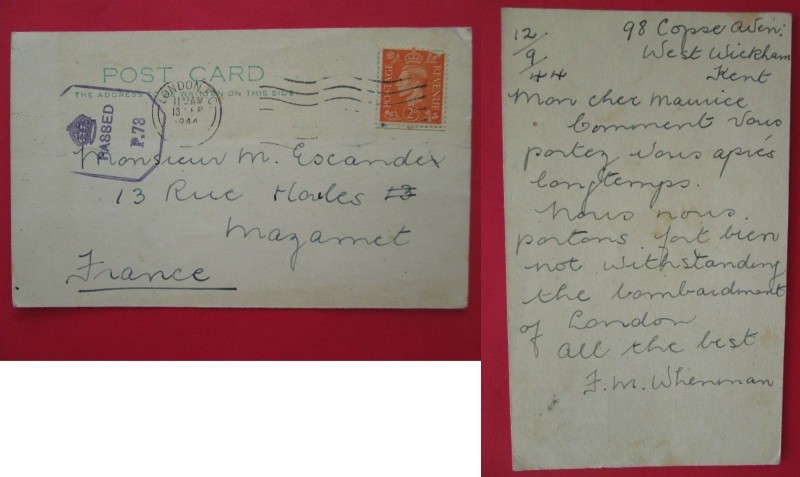 POST CARD
THE ADDRESS TO BE WRITTEN ON THIS SIDE
PASSED
P.73
LONDON
11 AM
13 SEP
1944
POSTAGE
REVENUE
2D
Monsieur M. Escandix
13 Rue Hales 13
Mazamet
France
12/9/44
98 Copse Aven:
West Wickham
Kent
Mon cher Maurice
Comment vous
portez vous après
longtemps.
Nous nous
portons fort bien
not withstanding
the bombardment
of London
all the best
F. M. Whenman